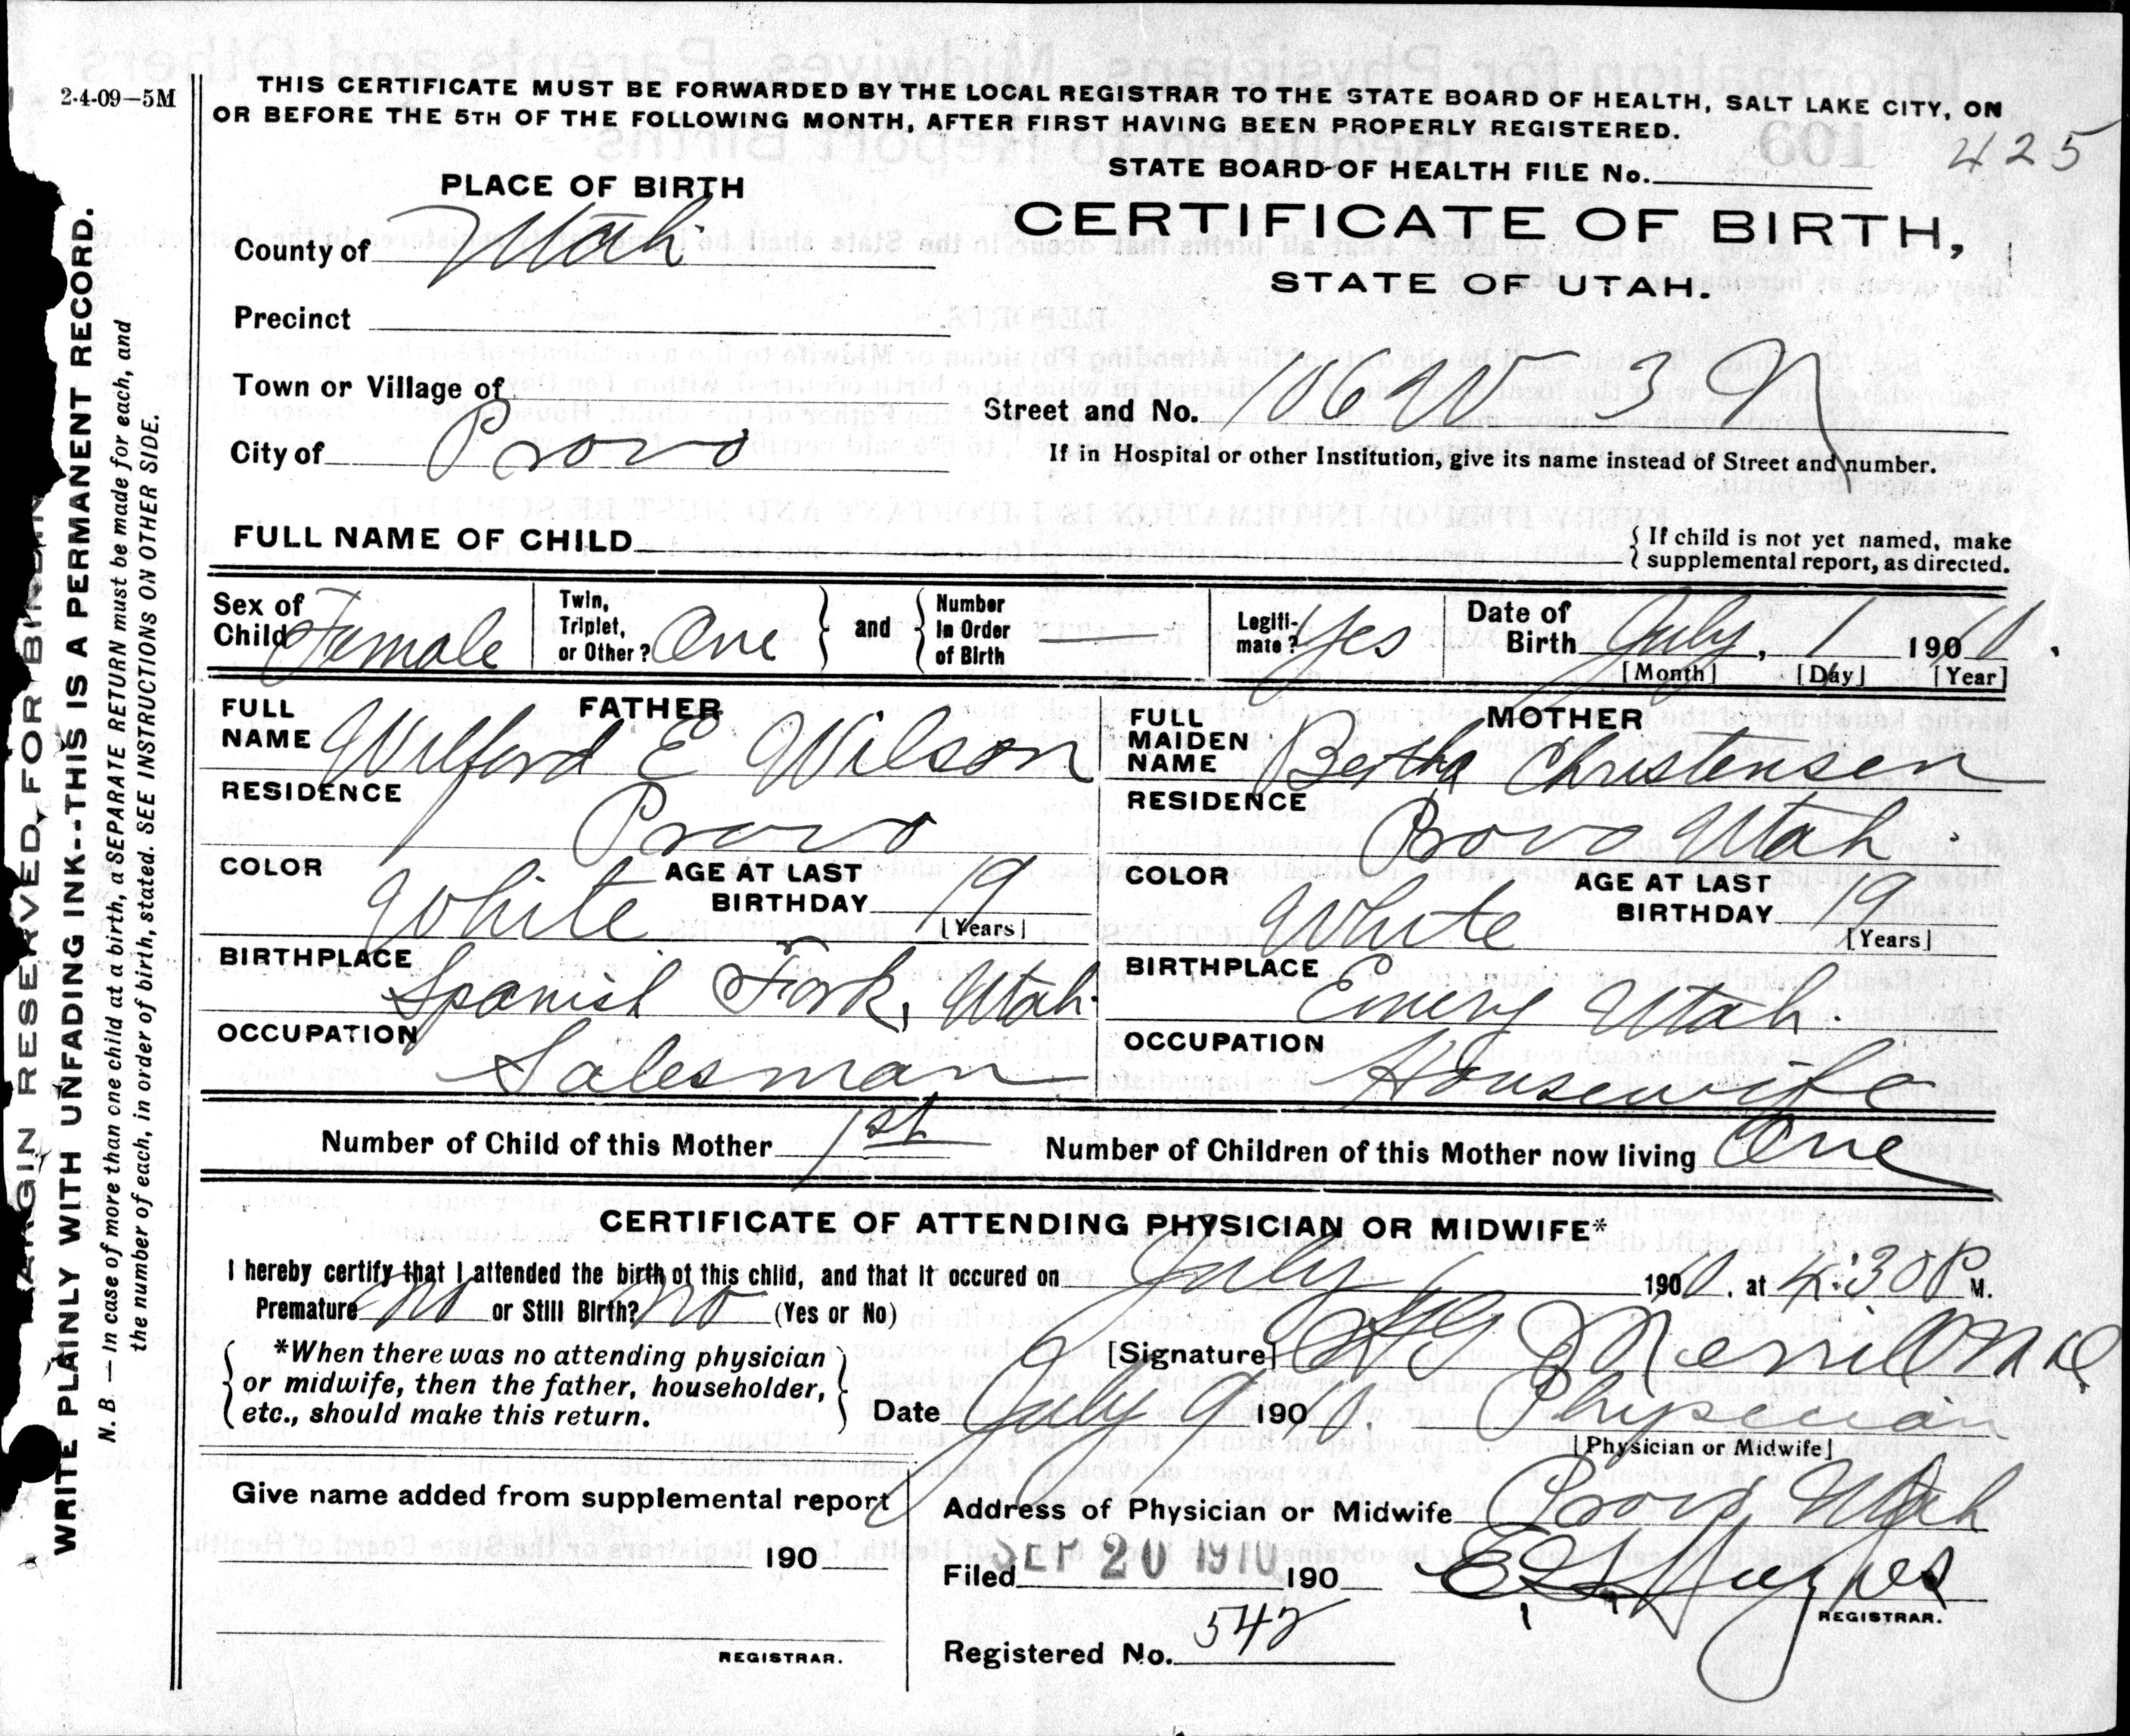 2-4-09—5M
THIS CERTIFICATE MUST BE FORWARDED BY THE LOCAL REGISTRAR TO THE STATE BOARD OF HEALTH, SALT LAKE CITY, ON
OR BEFORE THE 5TH OF THE FOLLOWING MONTH, AFTER FIRST HAVING BEEN PROPERLY REGISTERED.
425
STATE BOARD OF HEALTH FILE No.
PLACE OF BIRTH
CERTIFICATE OF BIRTH,
STATE OF UTAH.
County of Utah
Precinct
Town or Village of
City of Provo
Street and No. W 3 N
If in Hospital or other Institution, give its name instead of Street and number.
FULL NAME OF CHILD
{ If child is not yet named, make
supplemental report, as directed.
Sex of Child Female
Twin, Triplet, or Other? One } and { Number In Order of Birth —
Legiti-mate? Yes
Date of Birth July, 1 1910.
[Month] [Day] [Year]
FATHER
FULL NAME Wilford E Wilson
RESIDENCE Provo
COLOR White AGE AT LAST BIRTHDAY 19
[Years]
BIRTHPLACE Spanish Fork, Utah.
OCCUPATION Salesman
MOTHER
FULL MAIDEN NAME Bertha Christensen
RESIDENCE Provo Utah.
COLOR White AGE AT LAST BIRTHDAY 19
[Years]
BIRTHPLACE Emery Utah.
OCCUPATION Housewife
Number of Child of this Mother 1st
Number of Children of this Mother now living One
CERTIFICATE OF ATTENDING PHYSICIAN OR MIDWIFE*
I hereby certify that I attended the birth of this child, and that it occured on July 1 1910. at 4:30 P M.
Premature no or Still Birth? no (Yes or No)
{ *When there was no attending physician }
or midwife, then the father, householder,
etc., should make this return.
[Signature] Merrill MD
Date July 9 1910. Physician
[Physician or Midwife]
Give name added from supplemental report
190
REGISTRAR.
Address of Physician or Midwife Provo Utah
Filed SEP 20 1910 190
REGISTRAR.
Registered No. 542
MARGIN RESERVED FOR BINDIN
WRITE PLAINLY WITH UNFADING INK--THIS IS A PERMANENT RECORD.
N. B. — In case of more than one child at a birth, a SEPARATE RETURN must be made for each, and
the number of each, in order of birth, stated. SEE INSTRUCTIONS ON OTHER SIDE.